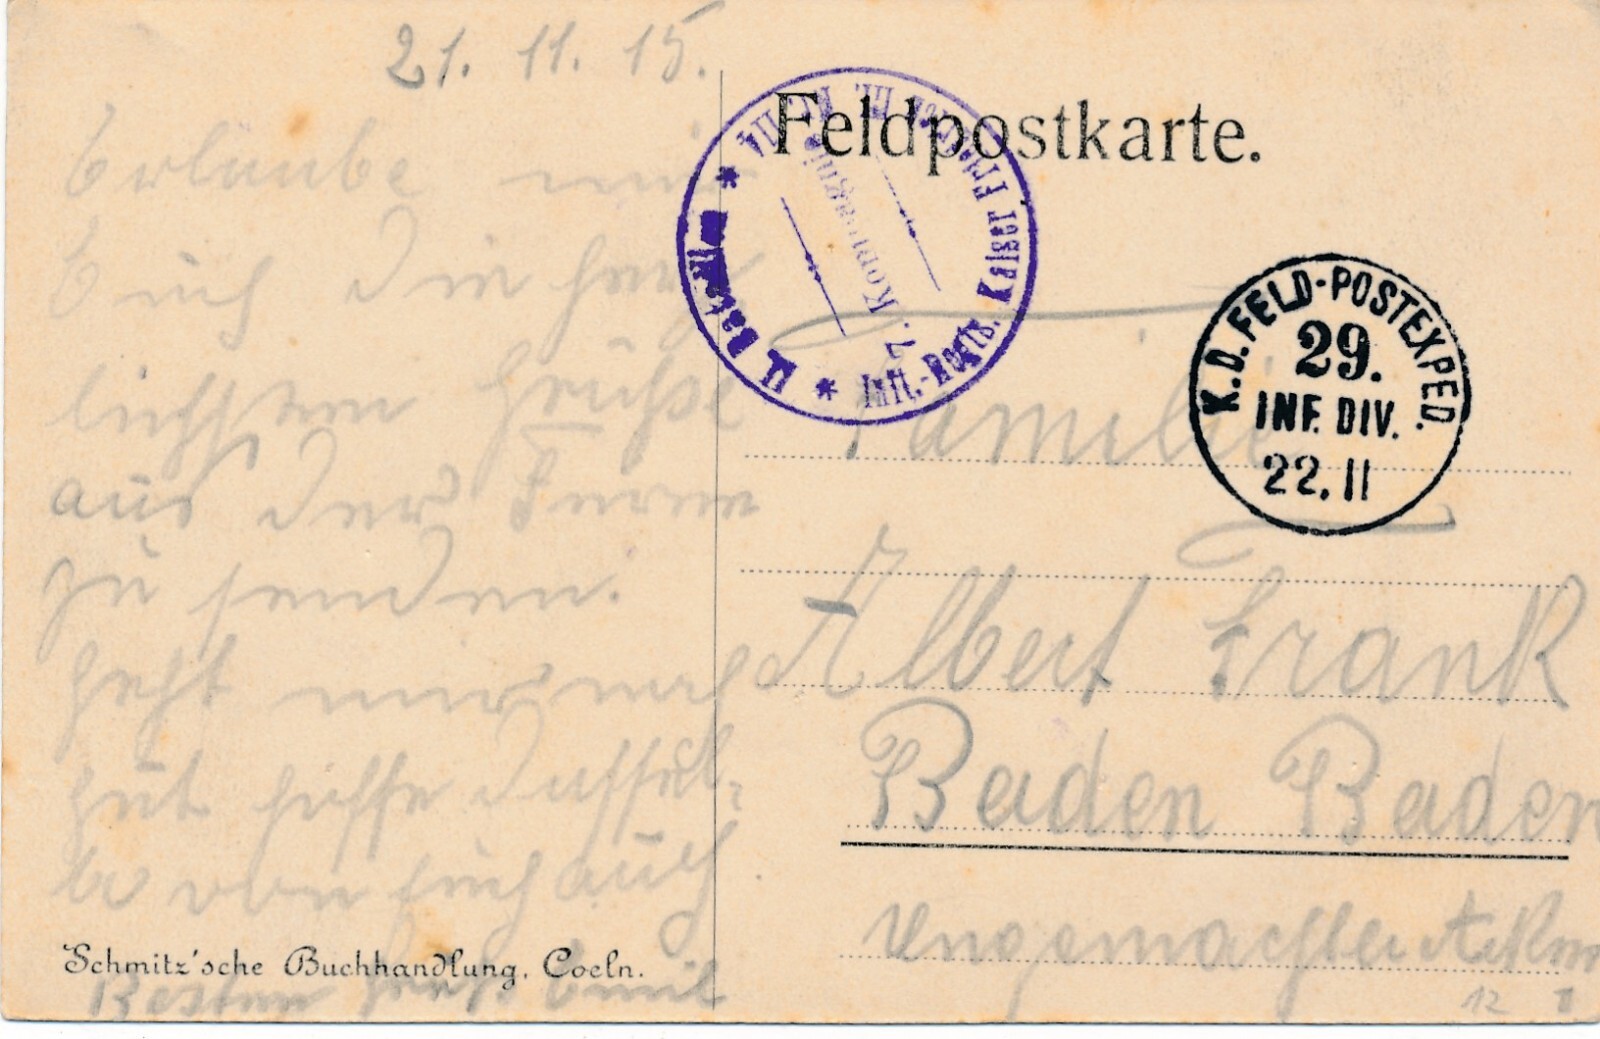 21. 11. 15.
Erlaube mir
Euch die herz
lichsten Grüße
aus der Ferne
zu senden.
geht mir noch
gut hoffe dassel-
be von Euch auch
Besten Gruß Emil
Schmitz'sche Buchhandlung, Coeln.
Feldpostkarte.
II. Bataill.
Inft.-Regts. Kaiser Friedrich III.
7. Kompagnie
K.D. FELD-POSTEXPED.
29.
INF. DIV.
22.11
Familie
Albert Frank
Baden Baden
12